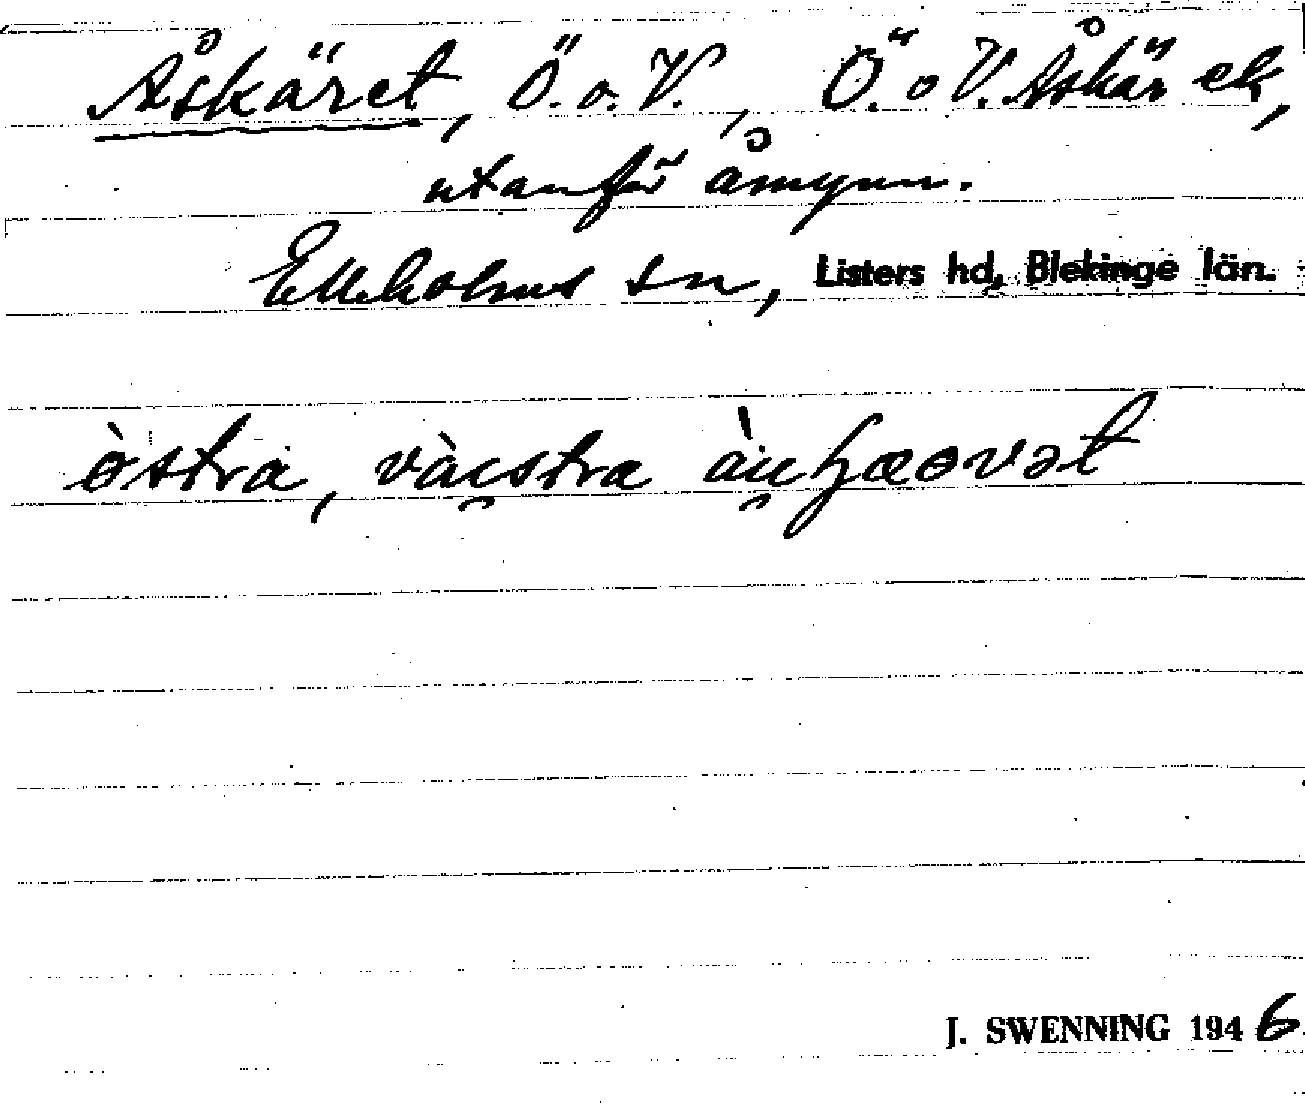 Åskäret, Ö. o. V., Ö. o V. Åskär ek,
utanför åmynn.
Elleholms sn, Listers hd, Blekinge län.
òstra, vàcstra
J. SWENNING 1946